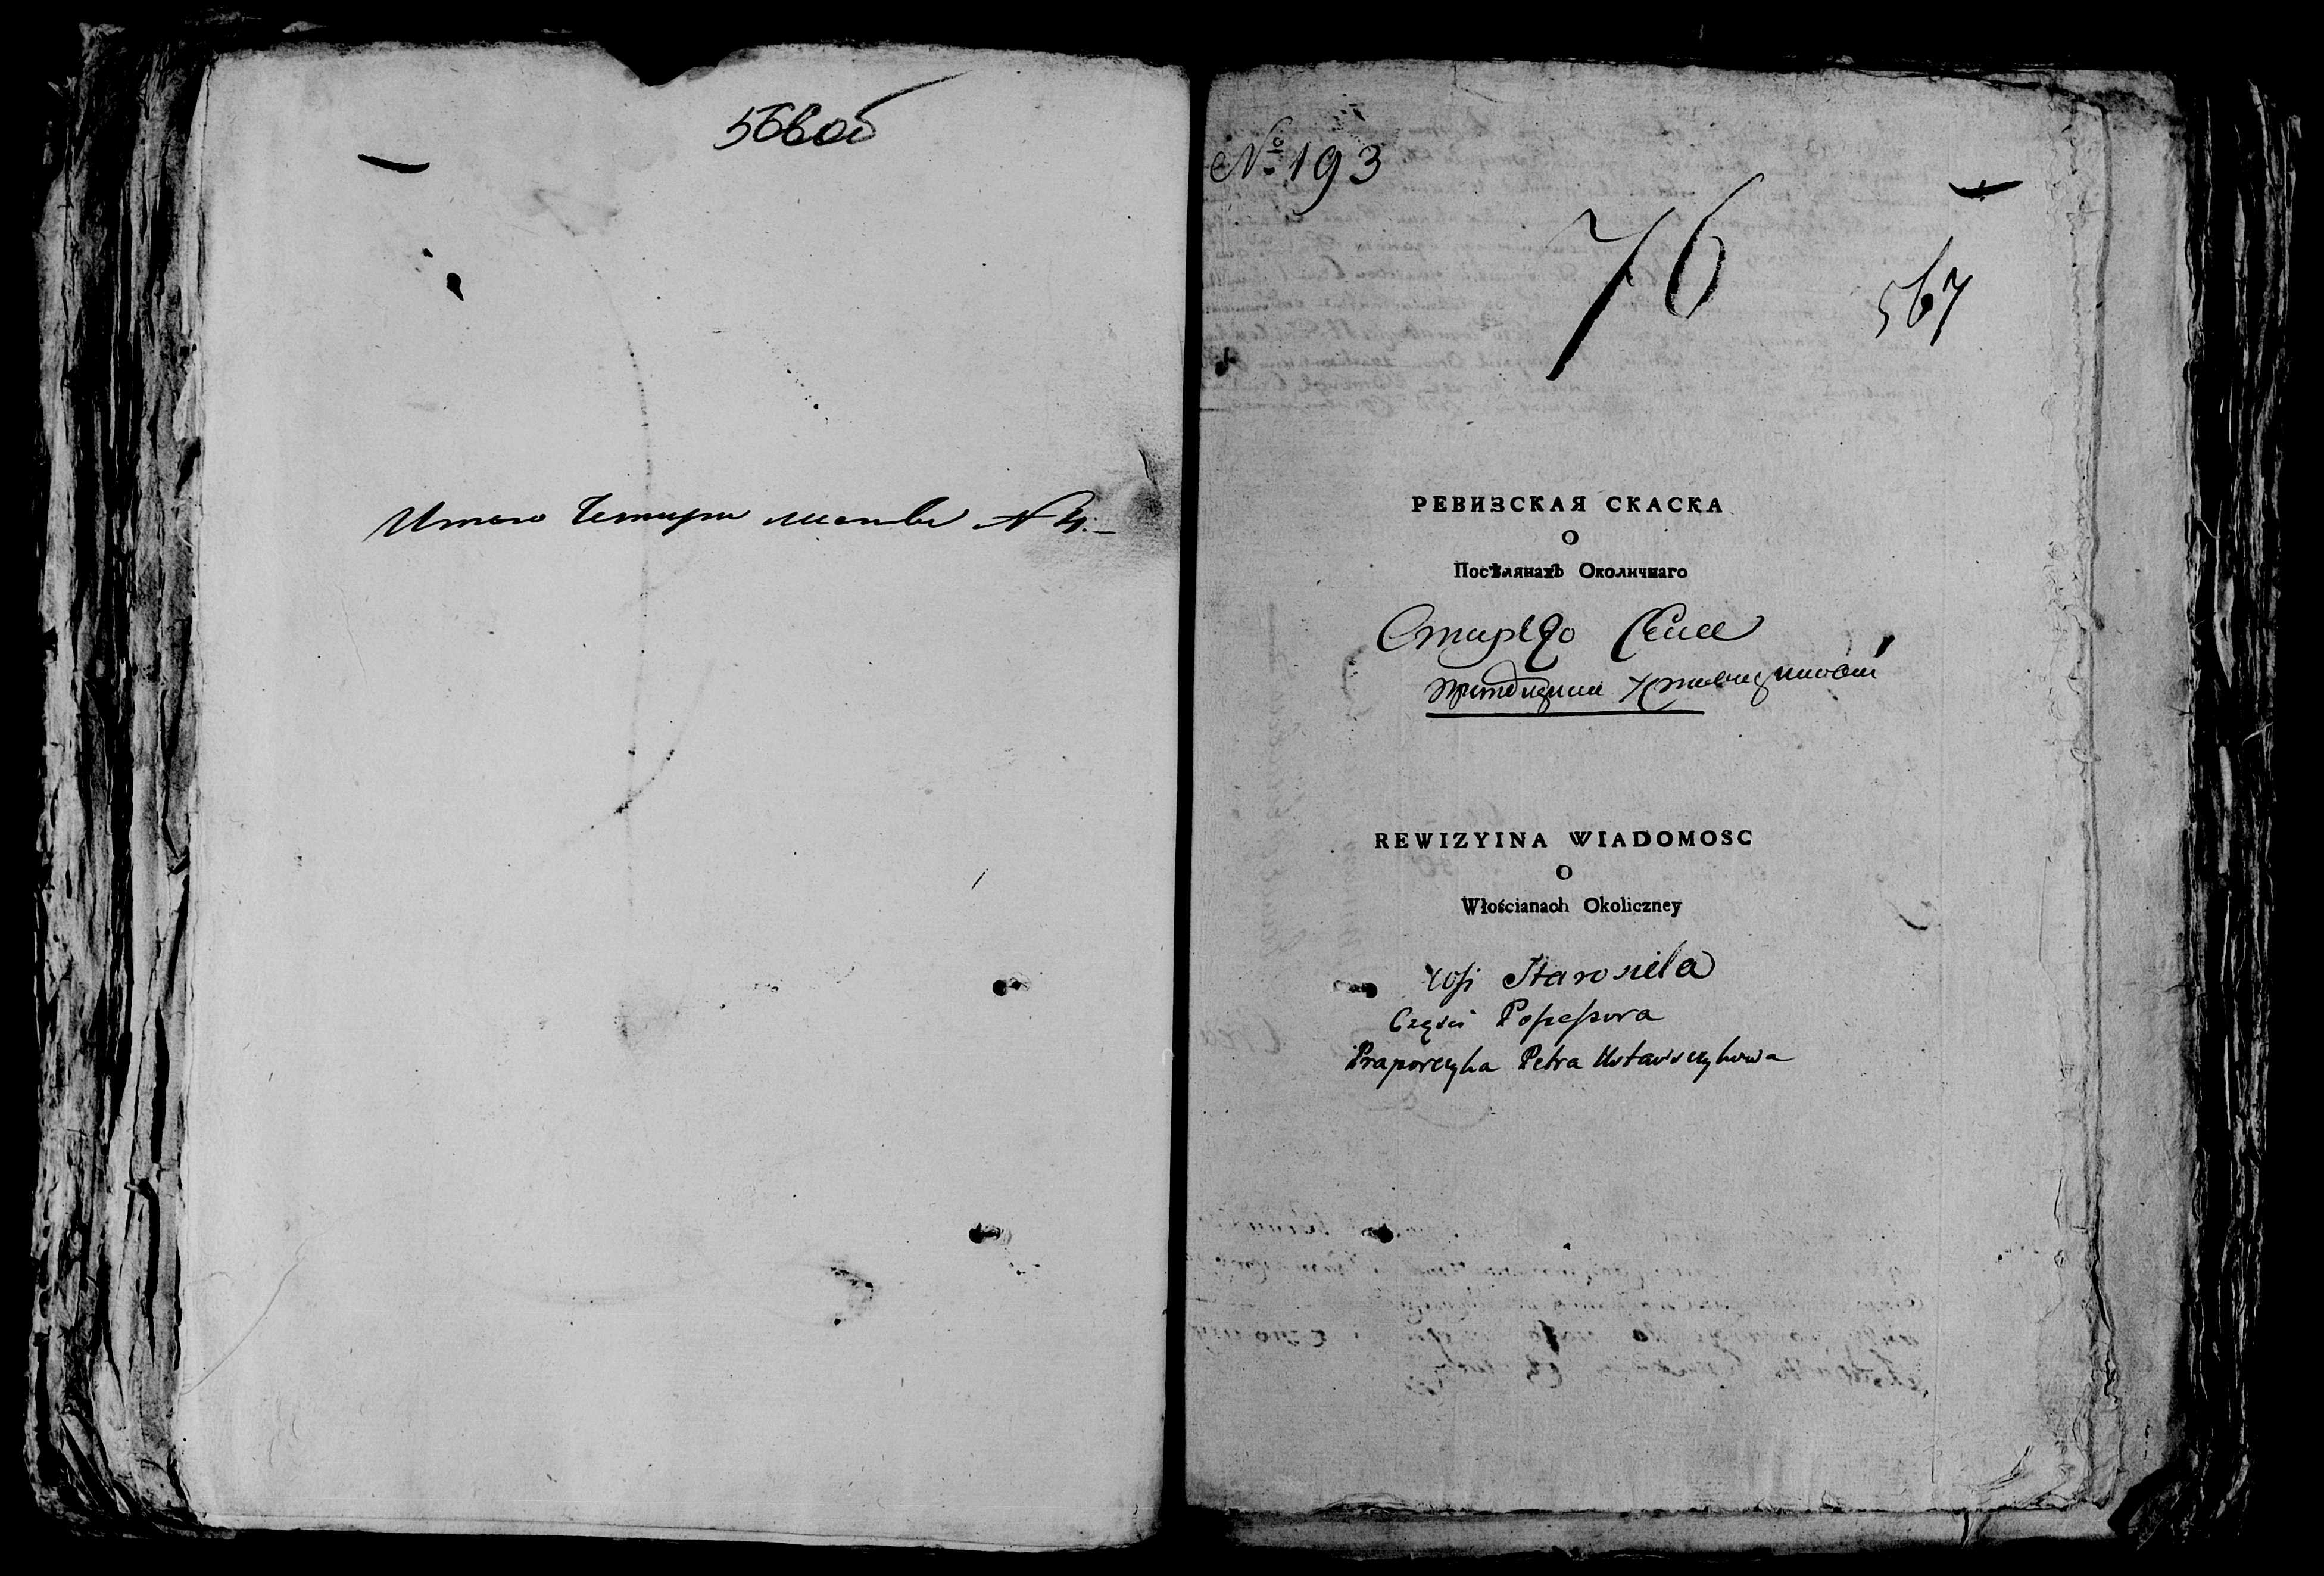 566об
Итого Четыри листы N 4.
№ 193
76
567
РЕВИЗСКАЯ СКАСКА
О
Посѣлянахъ Околичнаго
Старɛго Села
REWIZYINA WIADOMOSC
O
Włościanach Okoliczney
wsi Starosiela
Części Possessora
Praporczyka Petra Ustawszykowa